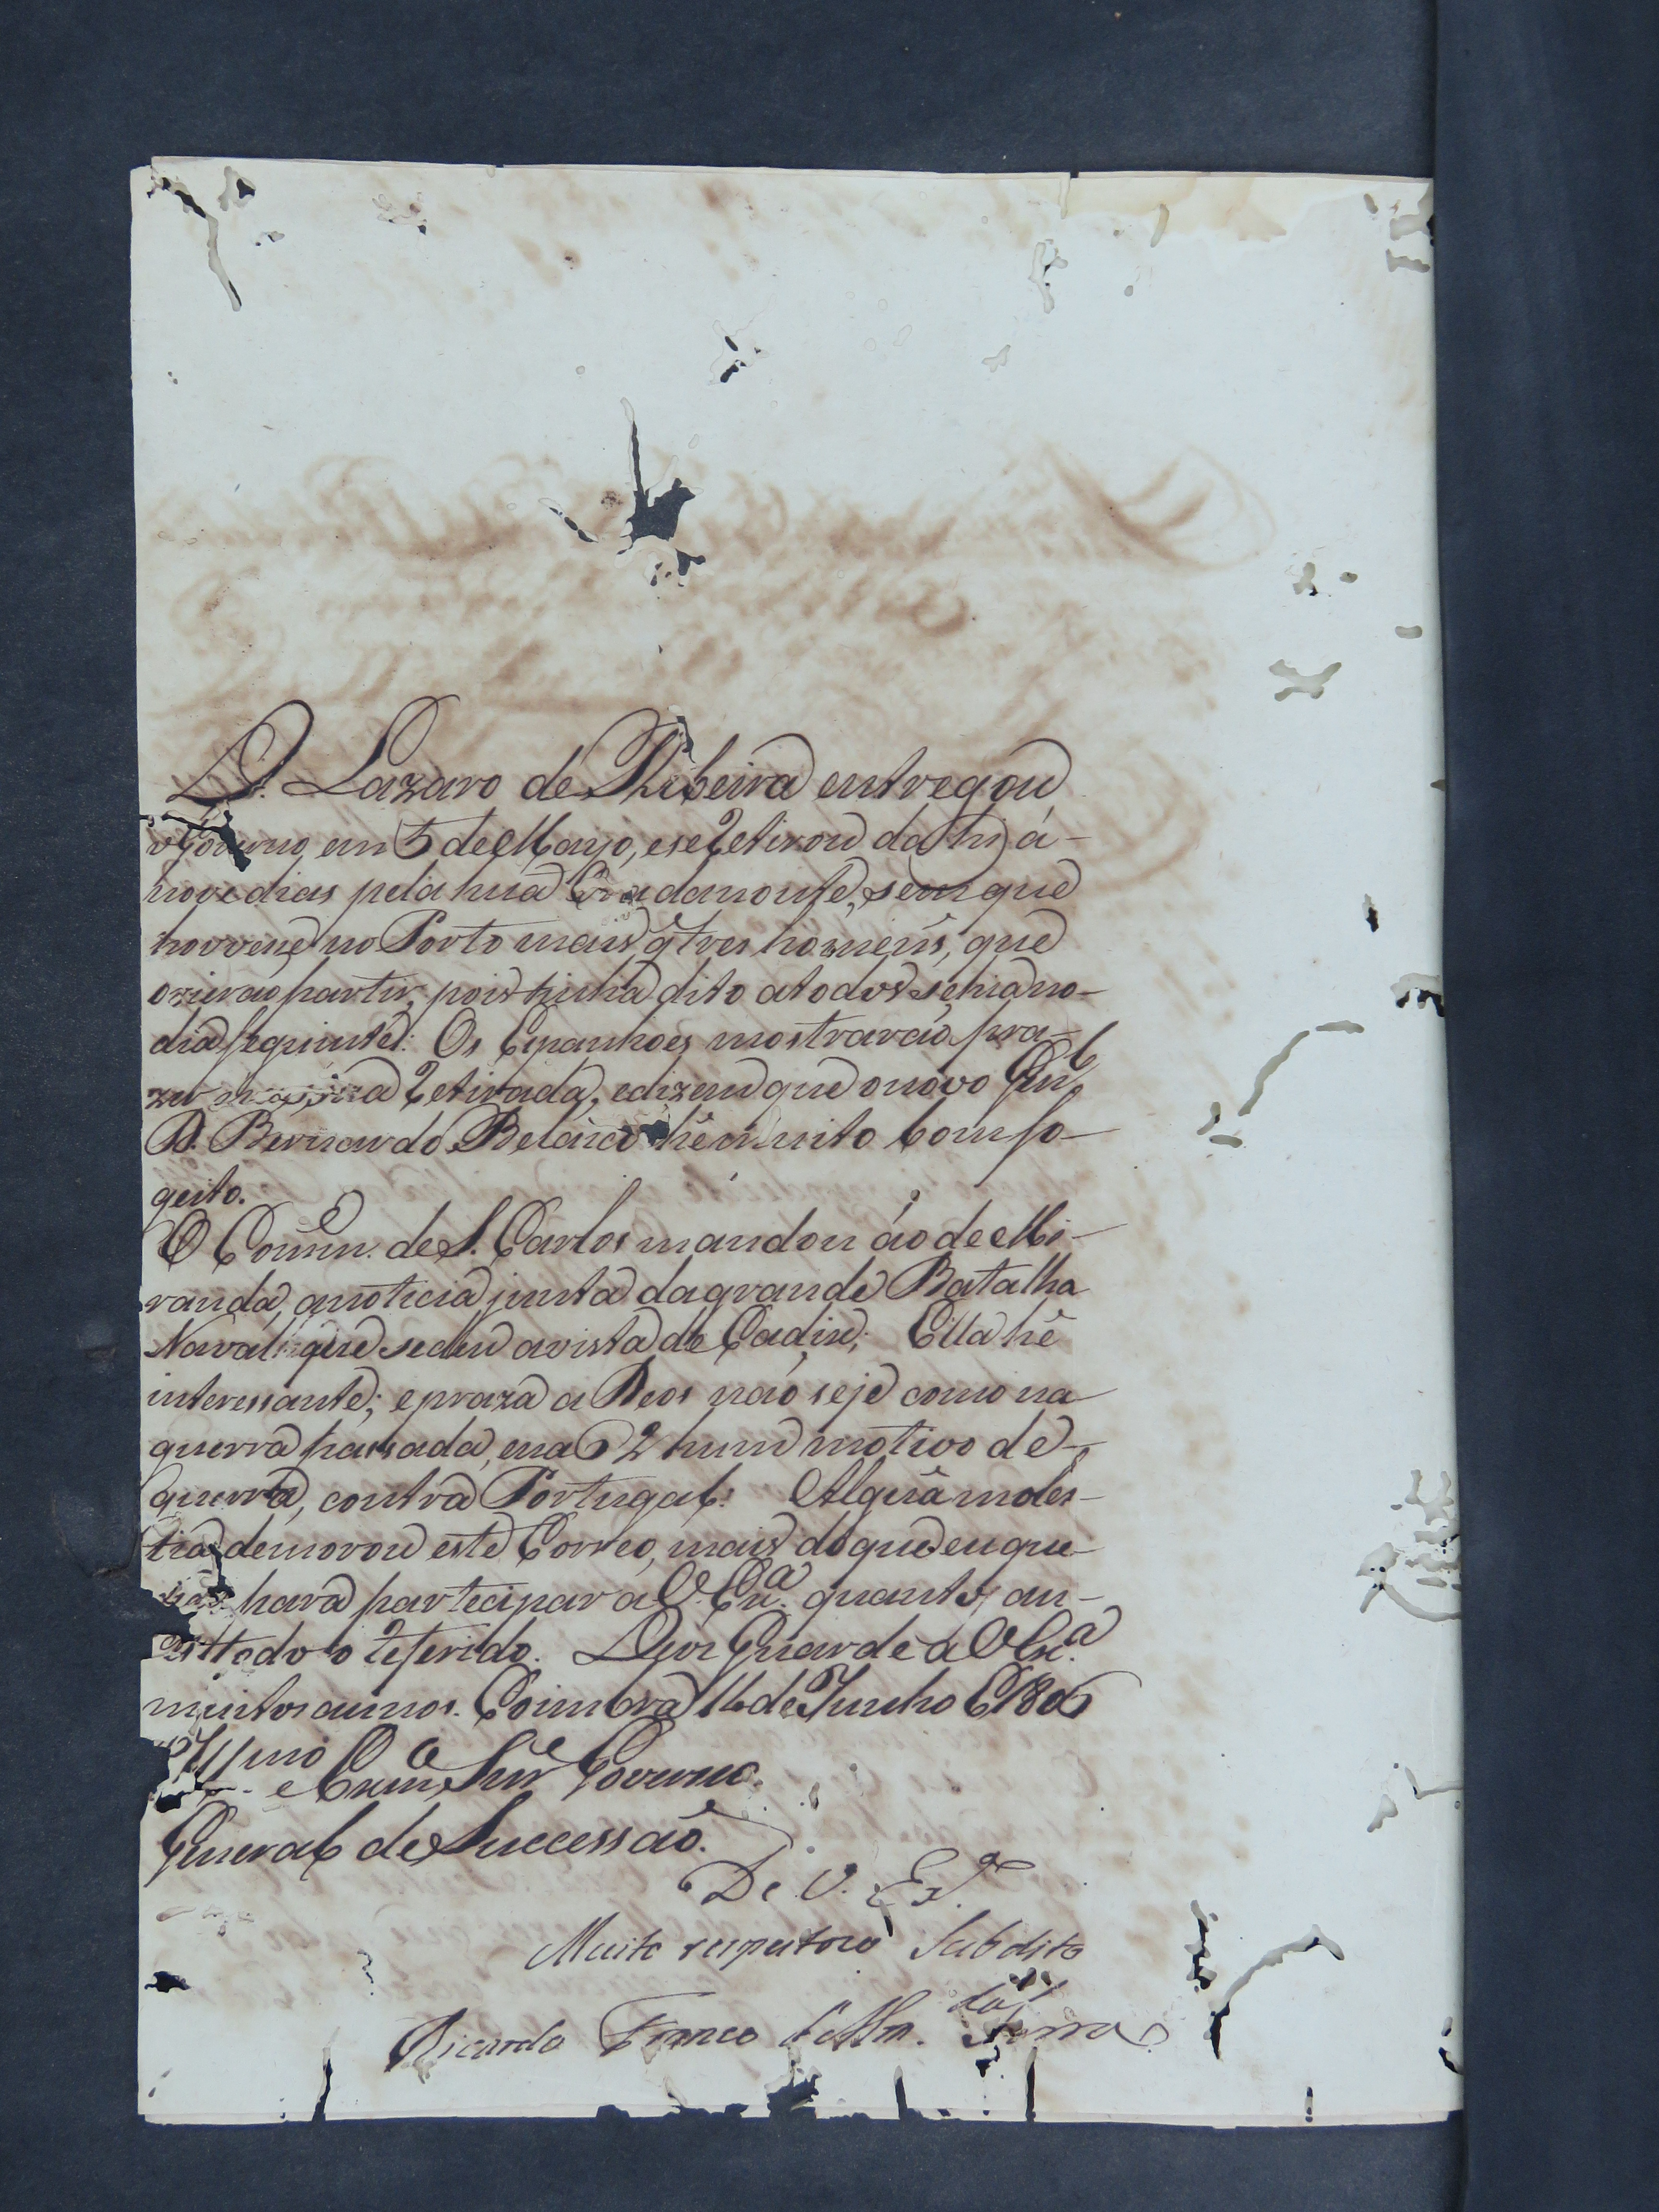 D. Lazaro de Ribeira entregou
o Governo em 5 de Mayo, e se retirou dahi á-
nove dias pela hua da noute, sem que
houvese no Porto mais q̃ tres homeñs, que
o virao partir, pois tinha dito a todos se hia no-
dia seguinte: Os Espanhoes mostrarão pra-
zer na sua retirada, e dizem que o novo Gen.l
D. Bernardo Belasco hê muito bom so-
geito.
O Comm.e de S. Carlos mandou áo de Mi-
randa, a noticia junta da grande Batalha
Naval que se deu a vista de Cadix; Ella hê
interessante; e praza a Deos não seje como na
guerra passada, e na 62 hum motivo de-
guerra, contra Portugal. Algũa moles-
tia demorou este Correo, mais do que eu que-
ria para partecipar a V. Ex.a quanto an-
tes todo o referido. Deos Guarde a V. Ex.a
muitos annos. Coimbra 16 de Junho 1806
Ill.mo e Ex.mo Snr. Governo
General de Successão.
De V. Ex.a
Muito respeitozo Subdito
Ricardo Franco d'Alm.da Serra